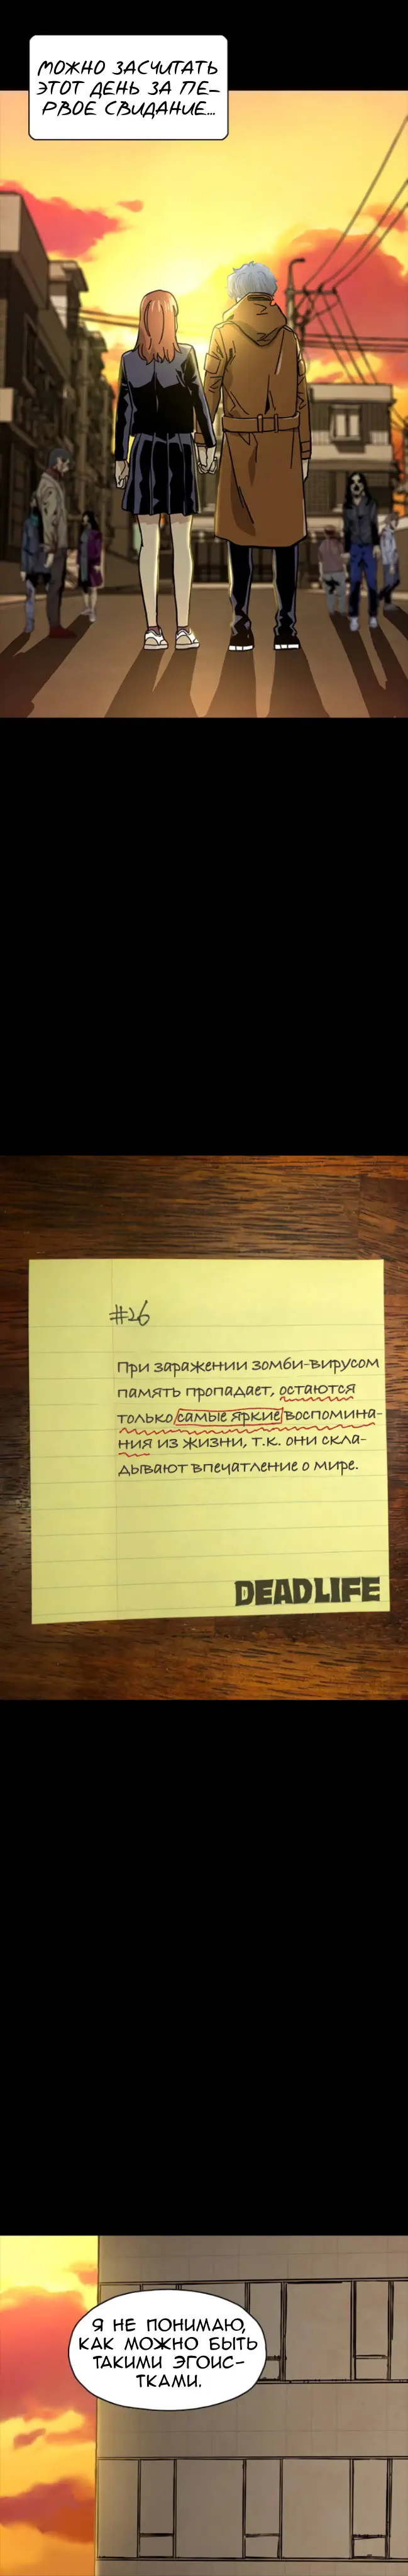 МОЖНО ЗАСЧИТАТЬ
ЭТОТ ДЕНЬ ЗА ПЕ-
РВОЕ СВИДАНИЕ...
#26
При заражении зомби-вирусом
память пропадает, остаются
только самые яркие воспомина-
ния из жизни, т.к. они скла-
дывают впечатление о мире.
DEADLIFE
Я НЕ ПОНИМАЮ,
КАК МОЖНО БЫТЬ
ТАКИМИ ЭГОИС-
ТКАМИ.